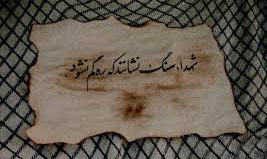 شهدا، سنگ نشانند که ره گم نشود.